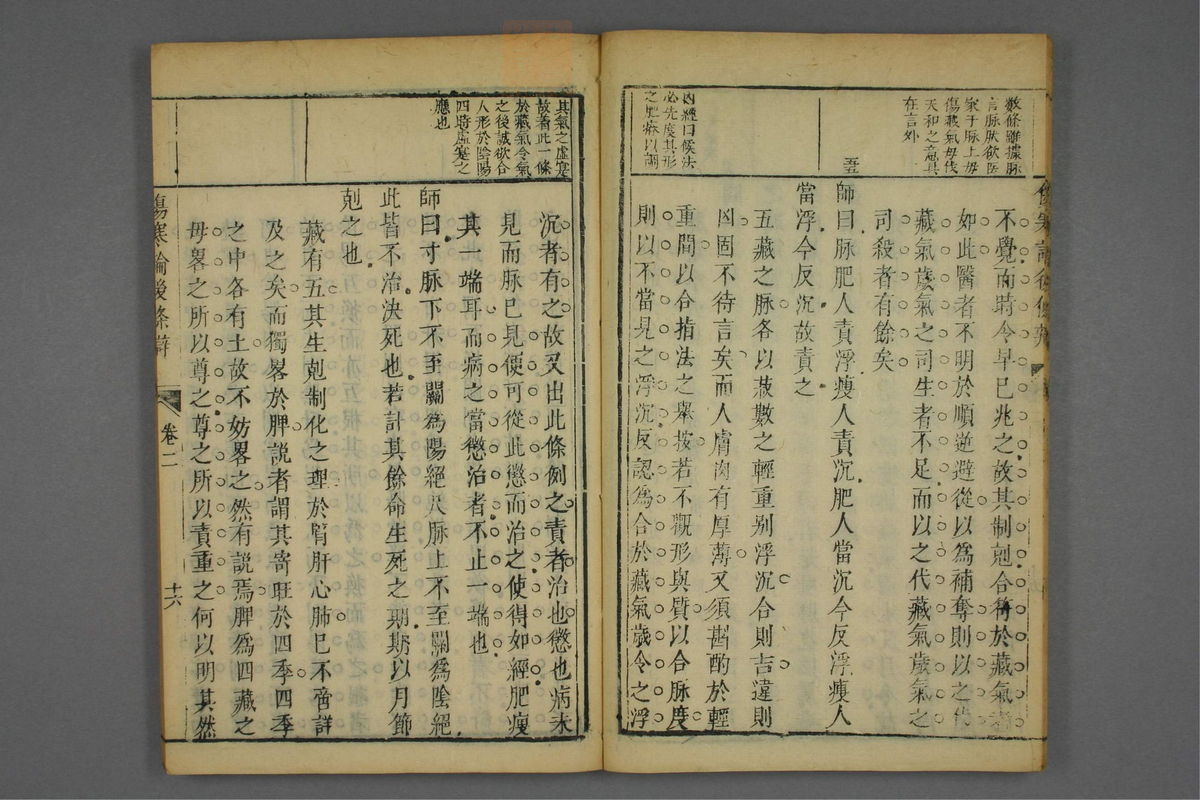 數條雖據脉
言脉厥欲医
家于脉上毋
傷藏氣毋伐
天和之意具
在言外
五
内經曰候法
必先度其形
之肥瘠以調
不覺而時令早已兆之故其制剋合符於藏氣者
如此醫者不明於順逆避從以為補奪則以之代
藏氣歲氣之司生者不足而以之代藏氣歲氣之
司殺者有餘矣
師曰脉肥人責浮瘦人責沉肥人當沉今反浮瘦人
當浮今反沉故責之
五藏之脉各以菽數之輕重别浮沉合則吉違則
凶固不待言矣而人膚肉有厚薄又須斟酌於輕
重間以合指法之舉按若不觀形與質以合脉度
則以不當見之浮沉反認為合於藏氣歲令之浮
其氣之虛寔
故着此一條
於藏氣令氣
之後誠欲合
人形於陰陽
四時虛寔之
應也
沉者有之故又出此條例之責者治也懲也病未
見而脉已見便可從此懲而治之使得如經肥瘦
其一端耳而病之當懲治者不止一端也
師曰寸脉下不至關為陽絕尺脉上不至關為陰絕
此皆不治决死也若計其餘命生死之期期以月節
剋之也
藏有五其生剋制化之理於腎肝心肺已不啻詳
及之矣而獨畧於脾說者謂其寄旺於四季四季
之中各有土故不妨畧之然有說焉脾為四藏之
毋畧之所以尊之尊之所以責重之何以明其然
傷寒論後條辨
卷二
十六